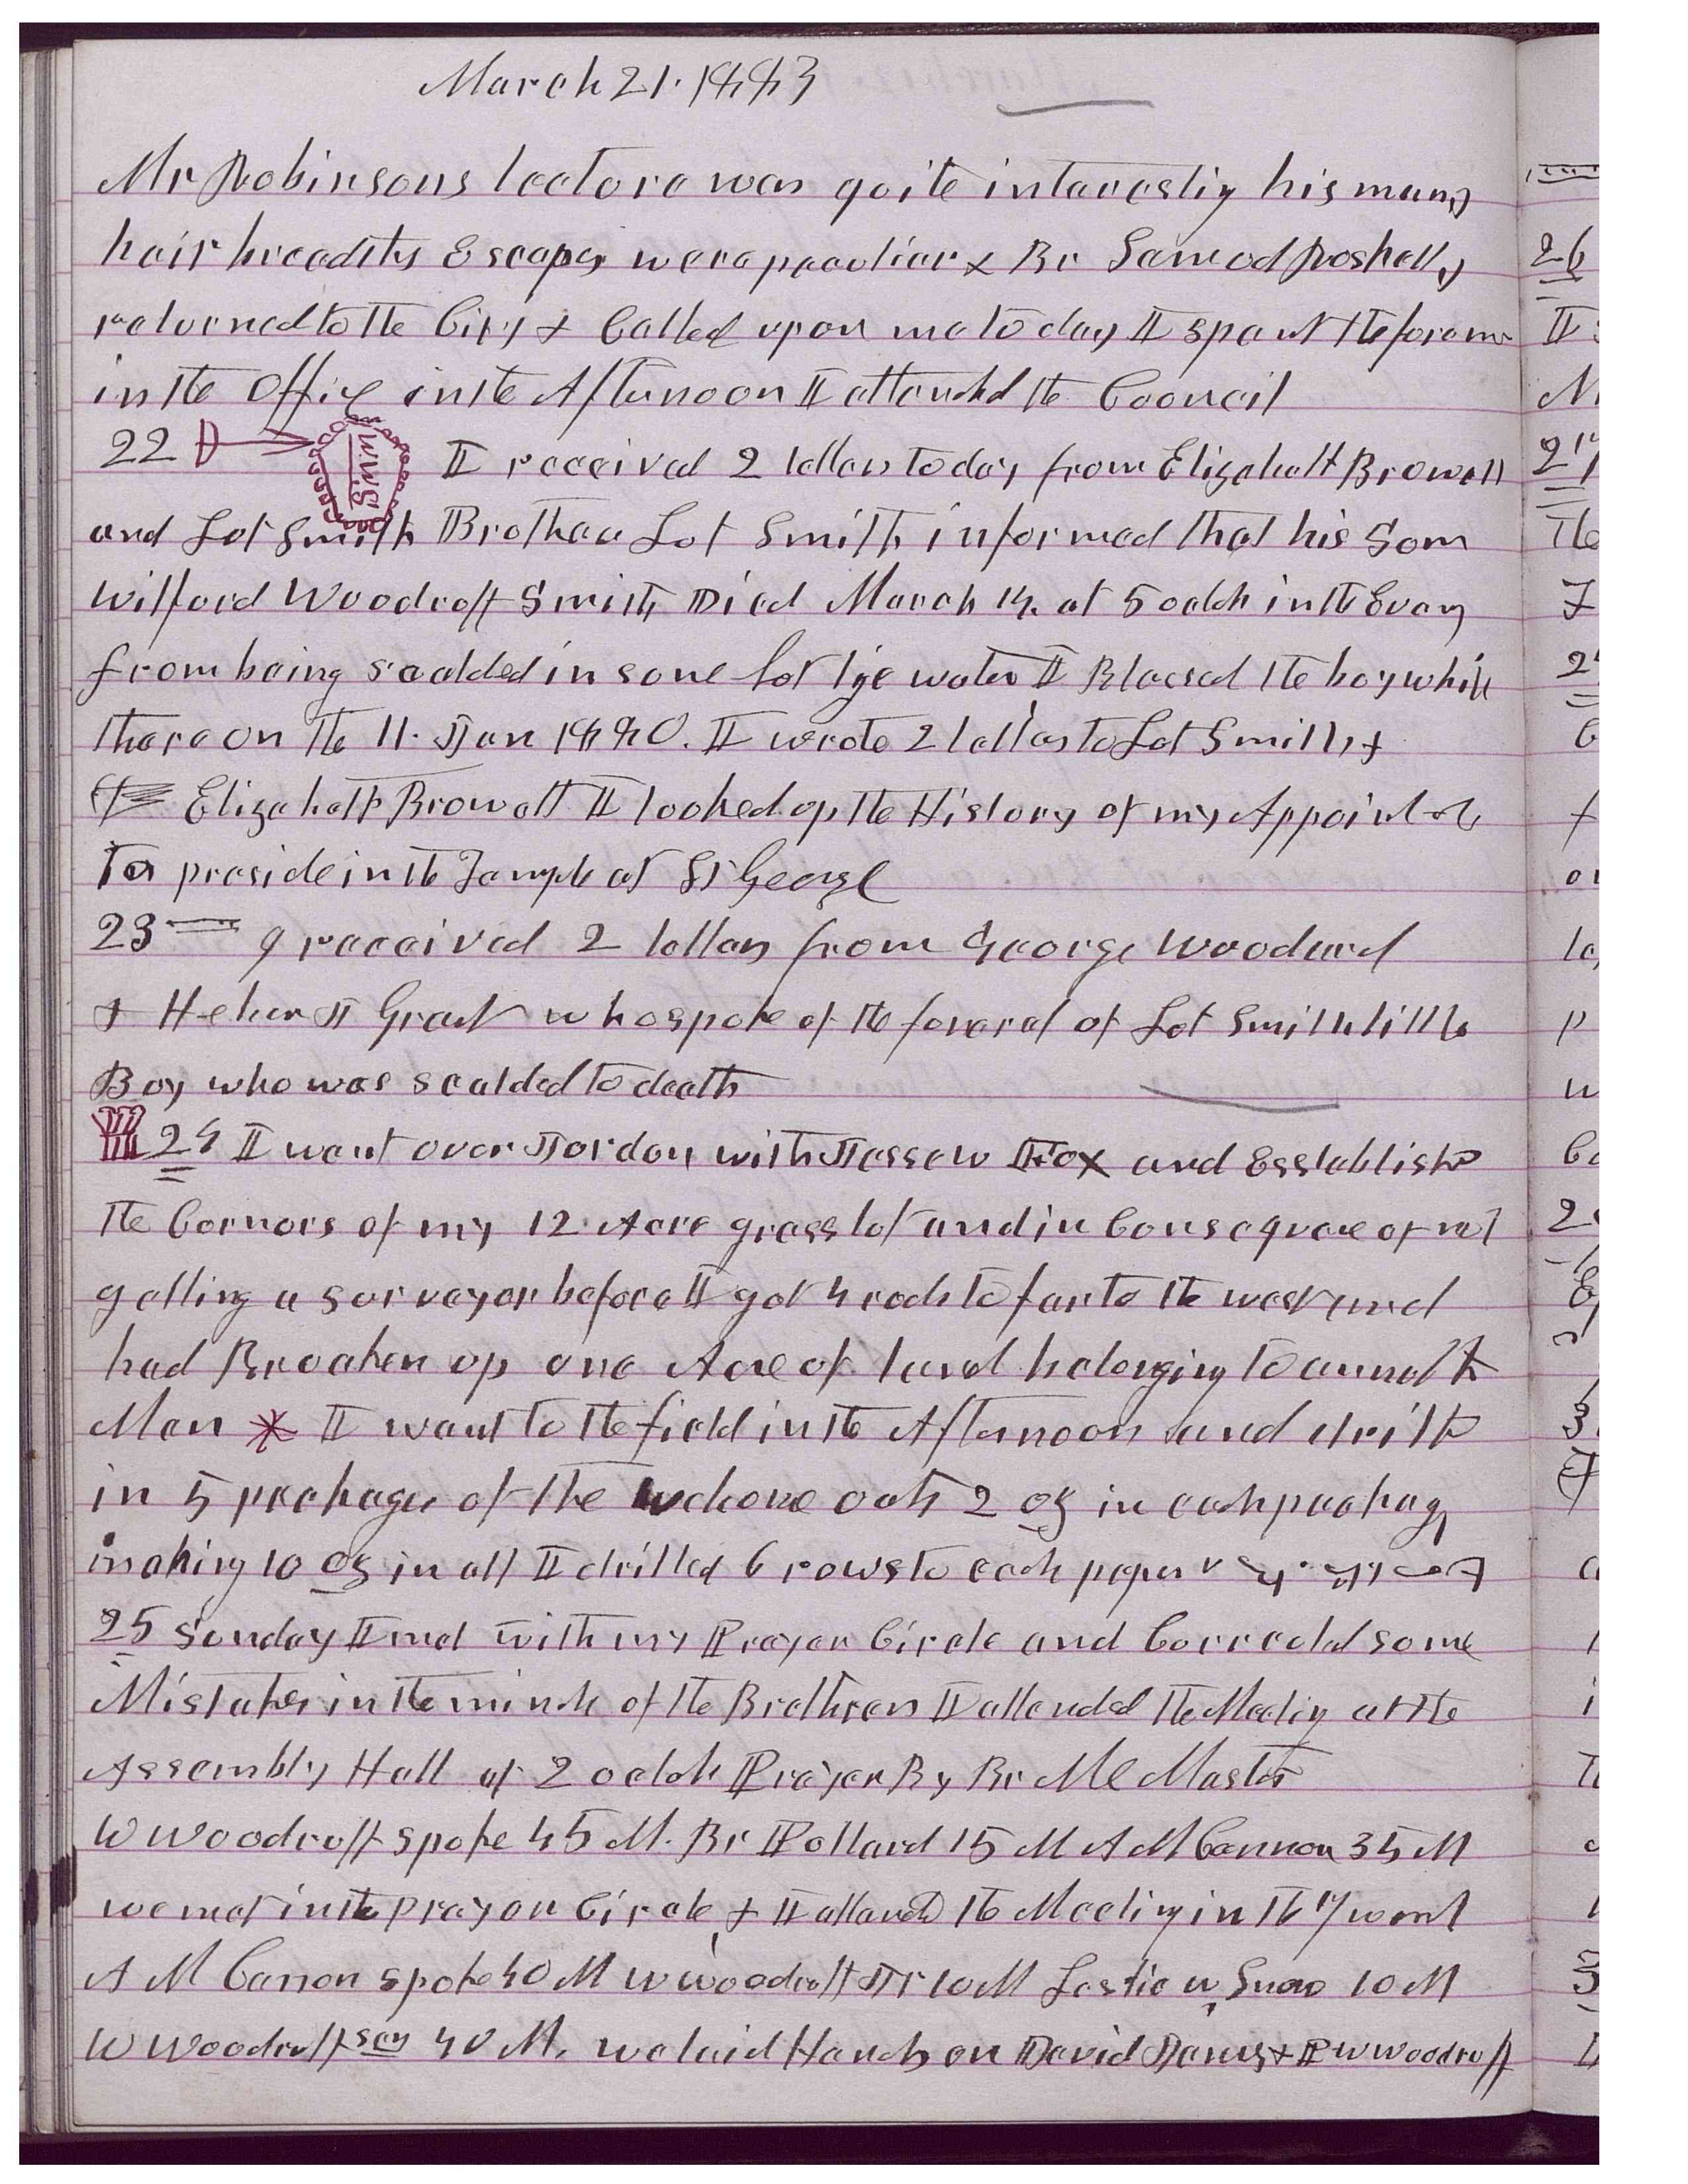 March 21. 1883
Mr Robinsons lecture was quite interestig his many
hair breadths Escapes were peculiar & Br Samuel Roskelly
returned to the City & Called upon me to day I spent the forenn
in the Office in the Afternoon I attended the Council
22 W.W.S. I received 2 letters to day from Elizabeth Browett
and Lot Smith Brother Lot Smith informed that his Son
Wilford Woodruff Smith Died March 14. at 5 oclok in the Eveng
from being scalded in some hot lye water I Blessed the boy while
there on the 11. Jan 1880. I wrote 2 letters to Lot Smith &
Elizabeth Browett I looked up the History of my Appoint
To preside in the Temple at St George
23 I received 2 letters from George Woodward
& Heber J Grant who spoke of the funeral of Lot Smith little
Boy who was scalded to death
24 I went over Jordon with Jessew Fox and Esstablish
the Cornors of my 12 Acre grass lot and in Consequnce of not
getting a surveyor before I got 4 rods to far to the west and
had Broaken up one Acre of land belonging to annoth
Man * I went to the field in the Afternoon and drilld
in 5 packages of the welcome oats 2 oz in each packag
making 10 oz in all I drilled 6 rows to each paper
25 Sunday I met with my Prayer Circle and Corrected some
Mistakes in the minds of the Brethren I attended the Meetig at the
Assembly Hall at 2 oclok Prayer By Br McMaster
W Woodruff spoke 45 M. Br Pollard 15 M A M Cannon 35 M
we met in the prayer Circle, & I attended the Meeting in the 17 ward
A M Cannon spoke 40 M W Woodruff Jr 10 M Leslie W Snow 10 M
W Woodruff sen 40 M. we laid Hands on David & P W Woodruff
26